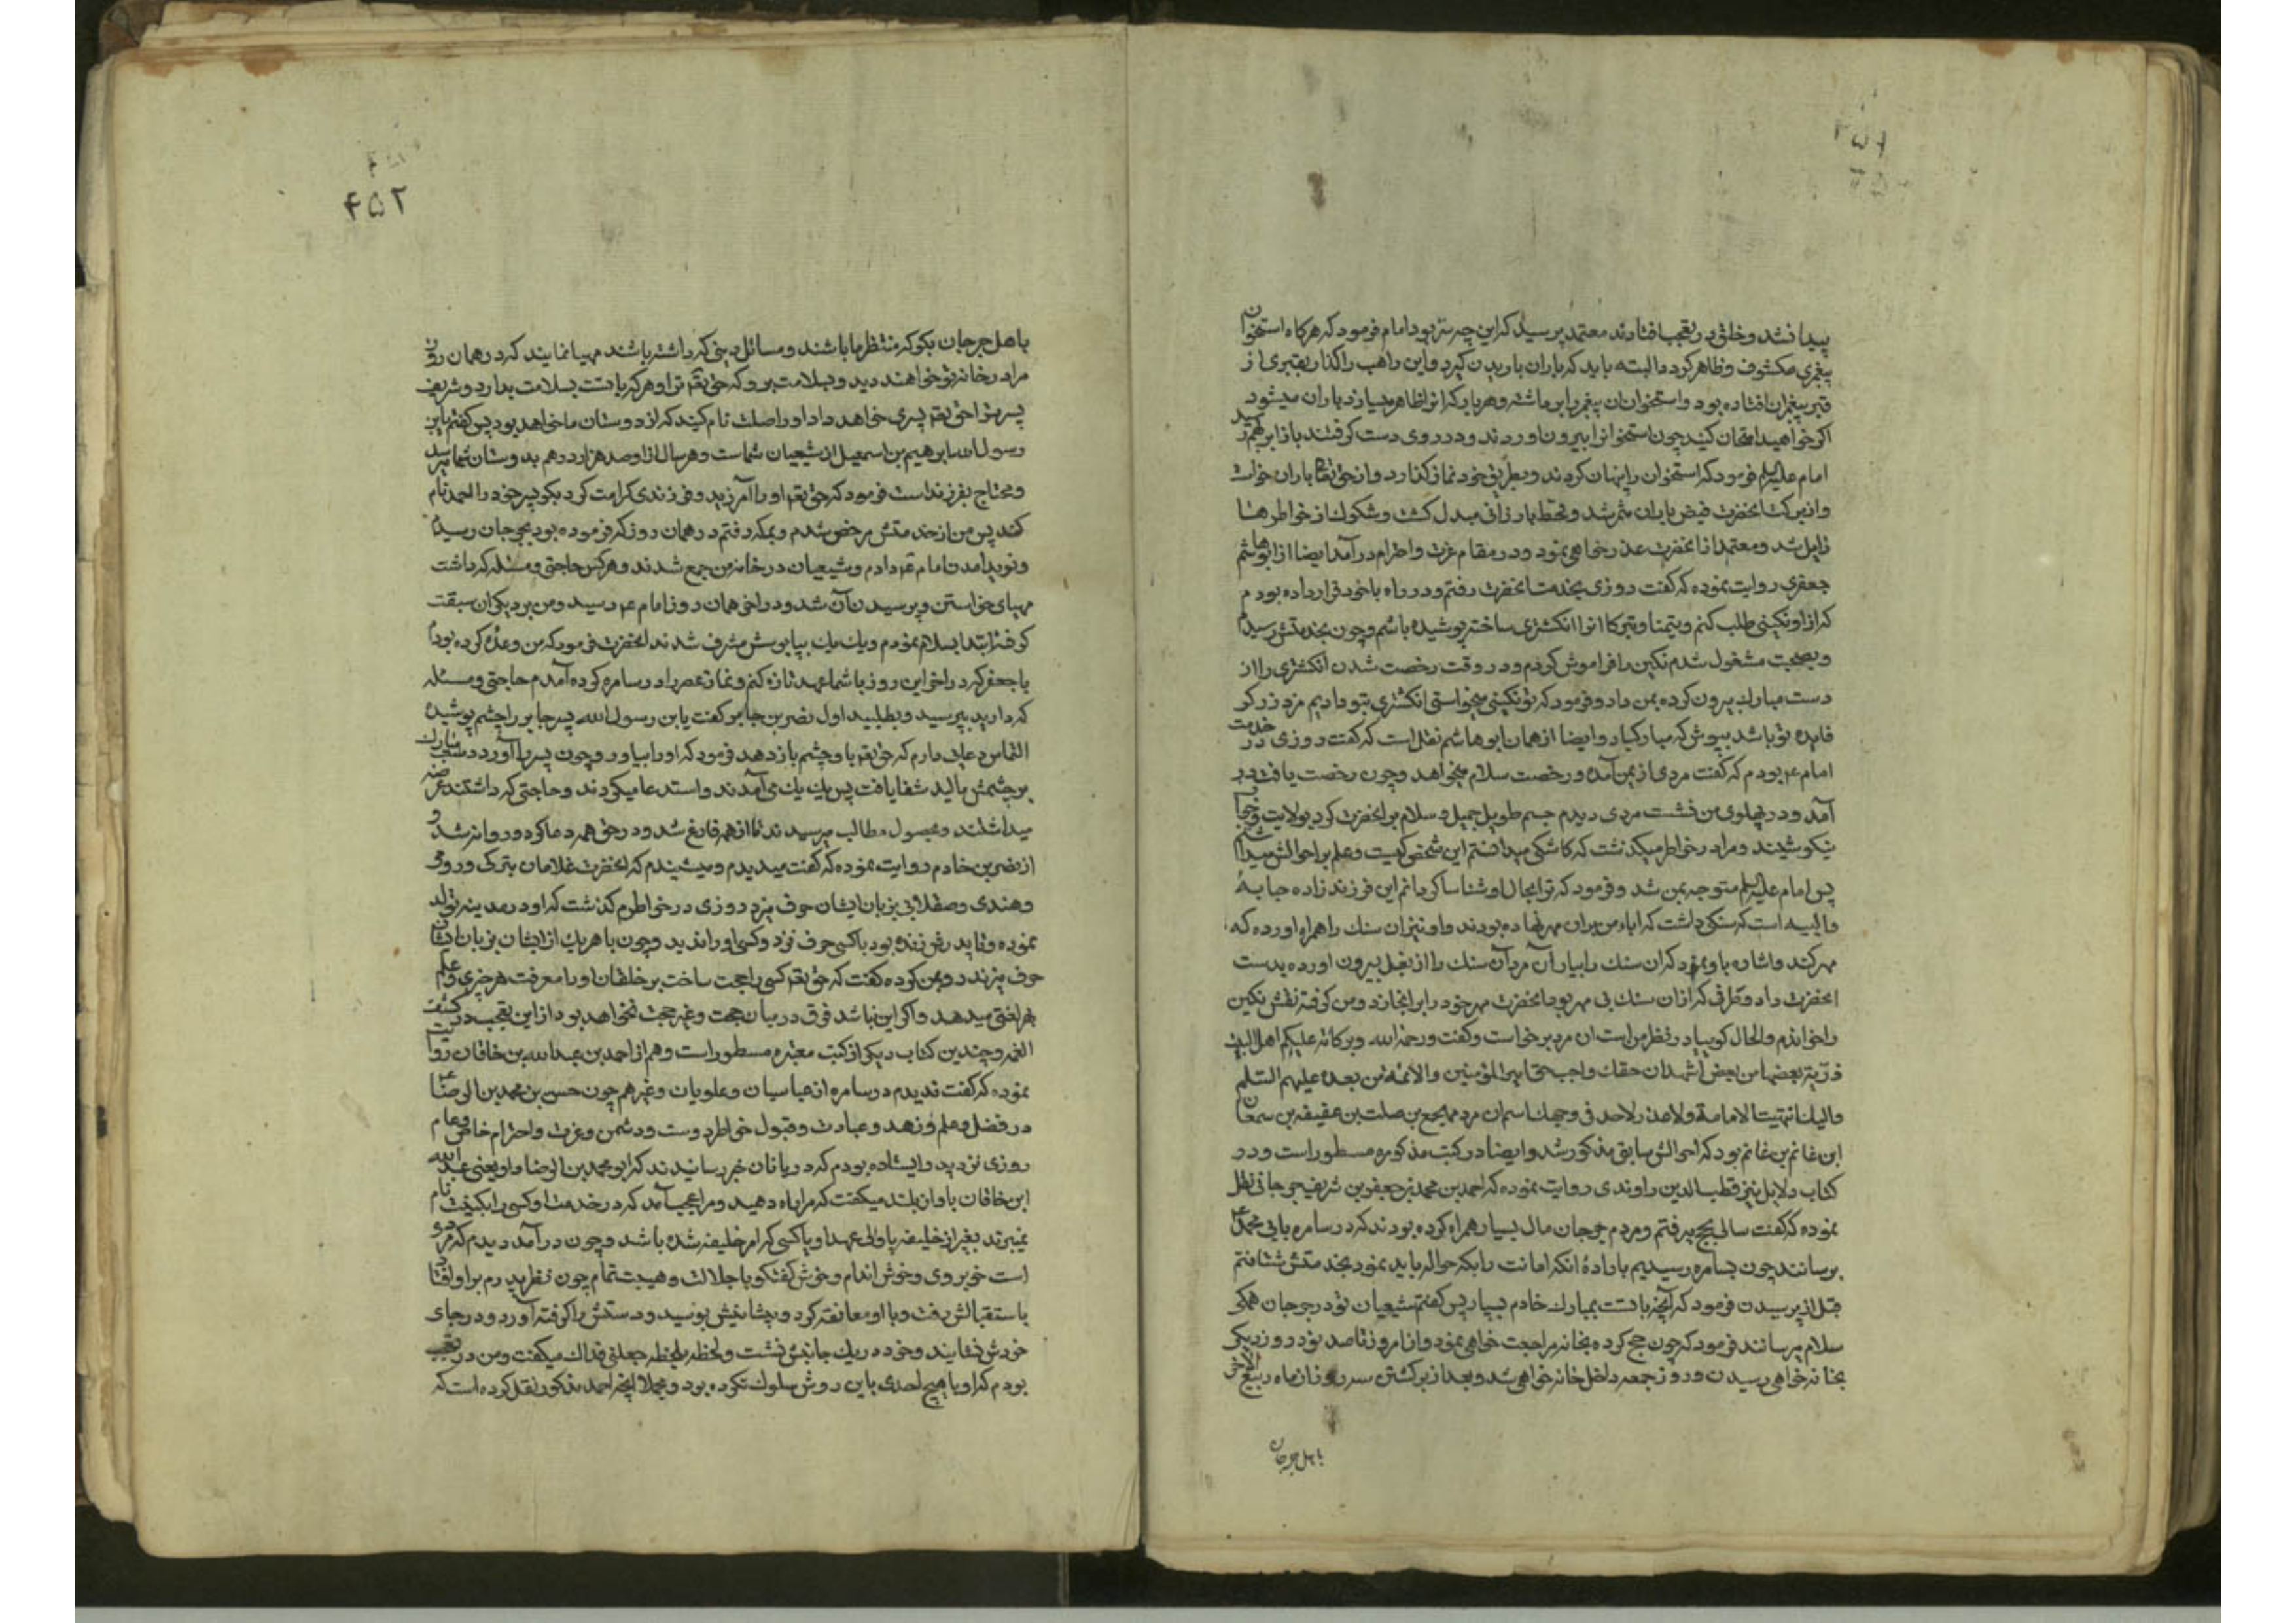 پیدا نشد و خلق در تعجب افتادند معتمد پرسید که این چه سرّ بود امام فرمود که هرکاه استخوان
پیغمبری مکشوف و ظاهر کردد البته باید که باران باریدن کیرد و این راهب را کذار بقبری از
قبر پیغمبران افتاده بود و استخوان آن پیغمبر را برداشته و هر بار که انرا ظاهر میسازد باران میشود
اکر خواهید امتحان کنید چون استخوانرا بیرون اوردند و در روی دست کرفتند باز ابر بهم رسید
امام علیه السلم فرمود که استخوان را پنهان کردند و بطریق خود نماز کذارد و از حق تعا باران خواست
و از برکت انحضرت فیض باران مثمر شد و قحط بارزانی مبدل کشت و شکوک از خواطرها
زایل شد و معتمد از انحضرت عذرخواهی نمود و در مقام عزت و احترام درآمد ایضا از ابو هاشم
جعفری روایت نموده که کفت روزی بخدمت انحضرت رفتم و در راه با خود قرار داده بودم
که از او نکینی طلب کنم و تیمنا و تبرکا انرا انکشتری ساخته پوشیده باشم و چون بخدمتش رسیدم
و بصحبت مشغول شدم نکین را فراموش کردم و در وقت رخصت شدن انکشتری را از
دست مبارک بیرون کرده بمن داد و فرمود که تو نکینی میخواستی انکشتری بتو دادیم مزد زرکر
فایده تو باشد بپوش که مبارکباد و ایضا از همان ابو هاشم نقل است که کفت روزی در خدمت
امام ع بودم که کفت مردی از یمن آمده و رخصت سلام میخواهد و چون رخصت یافت در
آمد و در پهلوی من نشست مردی دیدم جسیم طویل جمیل و سلام بر انحضرت کرد بولایت و جواب
نیکو شنید و مرا در خواطر میکذشت که کاشکی میدانستم این شخص کیست و علم بر احوالش میداشتم
پس امام علیه السلم متوجه بمن شد و فرمود که ترا بحال او شناسا کردانم این فرزند زاده حبابهٔ
والبیه است که سنکی داشت که اباء من بران مهر نهاده بودند و او نیز ان سنک را همراه اورده که
مهر کند و اشاره باو نمود که ان سنک را بیار آن مرد آن سنک را از بغل بیرون اورده بدست
انحضرت داد و طرفی که از ان سنک بی مهر بود انحضرت مهر خود را بر انجا زد و من کوفته نقش نکین
را خواندم و الحال کوییا در نظر من است ان مرد برخواست و کفت و رحمة الله و برکاته علیکم اهل البیت
ذریة بعضها من بعض اشهد ان حقک واجب حق امیر المؤمنین و الائمه من بعده علیهم السلم
و الیک انتهیت الامامة و لا عذر لاحد فی جهلک اسم ان مرد مهجع بن صلت بن عقبه بن سمعان
ابن غانم بن غانم بود که احوالش سابق مذکور شد و ایضا در کتب مذکوره مسطور است و در
کتاب دلایل نیز قطب الدین راوندی روایت نموده که احمد بن محمد از جعفر بن شریف جرجانی نقل
نموده که کفت سالی بحج میرفتم و مردم جرجان مال بسیار همراه کرده بودند که در سامره بابی محمد ع
برسانند چون بسامره رسیدیم باراده انکه امانت را بکه حواله باید نمود بخدمتش شتافتم
قبل از پرسیدن فرمود که آنچه با تست بمبارک خادم بسپار پس کفتم شیعیان تو در جرجان همکی
سلام میرسانند فرمود که چون حج کرده بخانه مراجعت خواهی نمود و از امروز تا صد و نود روز دیکر
بخانه خواهی رسیدن و روز جمعه داخل خانه خواهی شد و بعد از برکشتن سه روز از ماه ربیع الاخر
باهل جرجان
۴۵۲
باهل جرجان بکو که منتظر ما باشند و مسائل دینی که داشته باشند مهیا نمایند که در همان روز
مرا در خانه تو خواهند دید و بسلامت برو که حق تعا ترا و هرکه با تست بسلامت بدارد و شریف
پسر ترا حق تعا پسری خواهد داد او را صلت نام کنید که از دوستان ما خواهد بود پس کفتم یابن
رسول الله ابرهیم بن اسمعیل از شیعیان شماست و هر سال از او صد هزار درهم بدوستان شما میرسد
و محتاج بفرزند است فرمود که حق تعا او را آمرزید و فرزندی کرامت کرد بکو پسر خود را احمد نام
کند پس من از خدمتش مرخص شدم و بمکه رفتم در همان روز که فرموده بود بجرجان رسیدم
و نوید امدن امام ع دادم و شیعیان در خانه من جمع شدند و هر کس حاجتی و مسئله که داشت
مهیای خواستن و پرسیدن آن شد و در اخر همان روز امام ع رسید و من بر دیکران سبقت
کرفته ابتدا بسلام نمودم و یک یک بپابوسش مشرف شدند انحضرت فرمود که من وعده کرده بودم
با جعفر که در اخر این روز با شما عهد تازه کنم و نماز عصر را در سامره کرده آمدم حاجتی و مسئله
که دارید بپرسید و بطلبید اول نضر بن جابر کفت یابن رسول الله پسر جابر را چشم پوشیده
التماس دعایی دارم که حق تعا باو چشم باز دهد فرمود که او را بیاور و چون پسر را آورد دست مبارک
بر چشمش مالید شفا یافت پس یک یک می آمدند و استدعا میکردند و حاجتی که داشتند عرضه
میداشتند و بحصول مطالب میرسیدند تا از همه فارغ شد و در حق همه دعا کرد و روانه شد و
از نصر بن خادم روایت نموده که کفت میدیدم و میشنیدم که انحضرت غلامان بترکی و رومی
و هندی و صقلابی بزبان ایشان حرف میزد روزی در خواطرم کذشت که او در مدینه تولد
نموده و تا پدرش زنده بود با کسی حرف نزد و کسی او را ندید و چون با هر یک از ایشان بزبان ایشان
حرف میزند رو بمن کرده کفت که حق تعا کسی را حجت ساخت بر خلقان او را معرفت هر چیزی و علم
بهر لغتی میدهد و اکر این نباشد فرق در میان حجت و غیر حجت نخواهد بود از این تعجب در کشف
الغمه و چندین کتاب دیکر از کتب معتبره مسطور است و هم از احمد بن عبد الله بن خاقان روایت
نموده که کفت ندیدم در سامره از عباسیان و علویان و غیرهم چون حسن بن محمد بن الرضا ع
در فضل و علم و زهد و عبادت و قبول خواطر دوست و دشمن و عزت و احترام خاص و عام
روزی نزد پدر ایستاده بودم که دربانان خبر رسانیدند که ابو محمد بن الرضا و او یعنی عبد الله
ابن خاقان باواز بلند میکفت که مر اراه دهید و مرا عجب آمد که در خدمت او کسی را بکنیت نام
نمیبرند بغیر از خلیفه یا ولی عهد او یا کسی که امر خلیفه شده باشد و چون درآمد دیدم که مردی
است خوبروی و خوش اندام و خوش کفتکو با جلالت و هیبت تمام چون نظر پدرم بر او افتاد
باستقبالش رفت و با او معانقه کرد و پیشانیش بوسید و دستش را کرفته آورد و در جای
خودش نشانید و خود در یک جانبش نشست و لحظه بلحظه جعلنی فداک میکفت و من در تعجب
بودم که او با هیچ احدی باین روش سلوک نکرده بود و مجملا انچه احمد مذکور نقل کرده است که